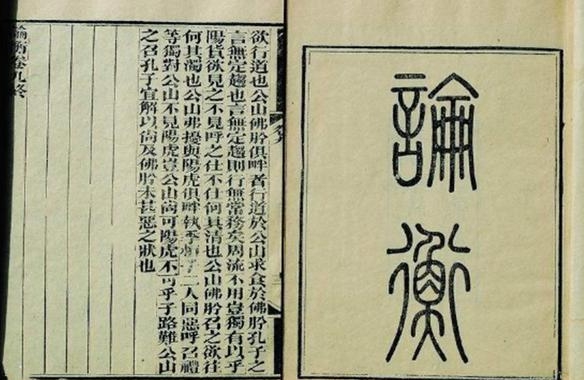 論衡
欲行道也公山佛肸俱畔者行道於公山求食於佛肸孔子之
言無定趨也言無定趨則行無常務矣周流不用豈獨有以乎
陽貨欲見之不見呼之仕不仕何其清也公山佛肸召之欲往
何其濁也公山弗擾與陽虎俱畔執季子二人同惡呼召禮
等獨對公山不見陽虎豈公山尙可陽虎不可乎子路難公山
之召孔子宜解以尙及佛肸未甚惡之狀也
論衡卷九終